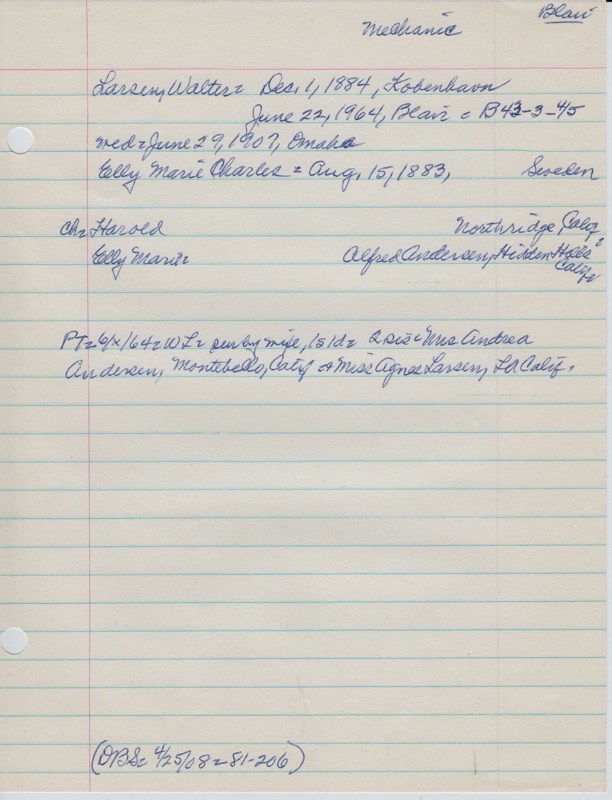 Blair
Mechanic
Larsen, Walter= Dec, 1, 1884, Kobenhavn
June 22, 1964, Blair = B43-3-4/5
wed= June 29, 1907, Omaha
Elly Marie Charles= Aug, 15, 1883, Sweden
ch= Harold Northridge, Calif
Elly Marie= Alfred Andersen, Hidden Hills
Calif=
PT= 6/x/64= WL= sur by wife, 1s 1d= 2 sis= Mrs Andrea
Andersen, Montebello, Calif + Miss Agnes Larsen, LA Calif.
(DBS= 4/25/08= 81-206)